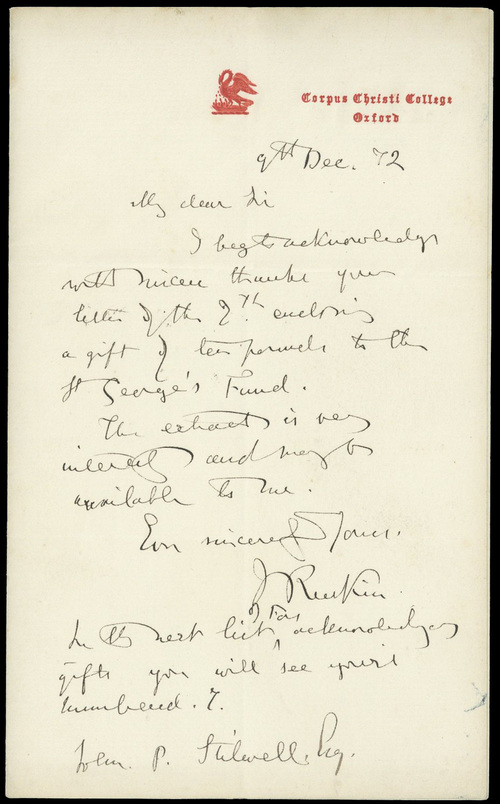 Corpus Christi College
Oxford
9th Dec. 72
My dear Sir
I beg to acknowledge
with sincere thanks your
letter of the 7th. enclosing
a gift of ten pounds to the
St George's Fund.
The extract is very
interesting and may be
available to me.
Ever sincerely Yours.
J Ruskin
In the next list of Fors acknowledging
gifts you will see yours
numbered. 7.
John. P. Stilwell. Esq.